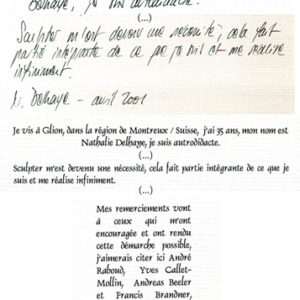 Delhaye, je suis autodidacte.
(...)
Sculpter m'est devenu une nécessité, cela fait
partie intégrante de ce que je suis et me réalise
infiniment.
N. Delhaye - avril 2001
Je vis à Glion, dans la région de Montreux / Suisse, j'ai 35 ans, mon nom est
Nathalie Delhaye, je suis autodidacte.
(...)
Sculpter m'est devenu une nécessité, cela fait partie intégrante de ce que je
suis et me réalise infiniment.
(...)
Mes remerciements vont
à ceux qui m'ont
encouragée et ont rendu
cette démarche possible,
j'aimerais citer ici André
Raboud, Yves Gallet-
Mollin, Andreas Beeler
et Francis Brandner,